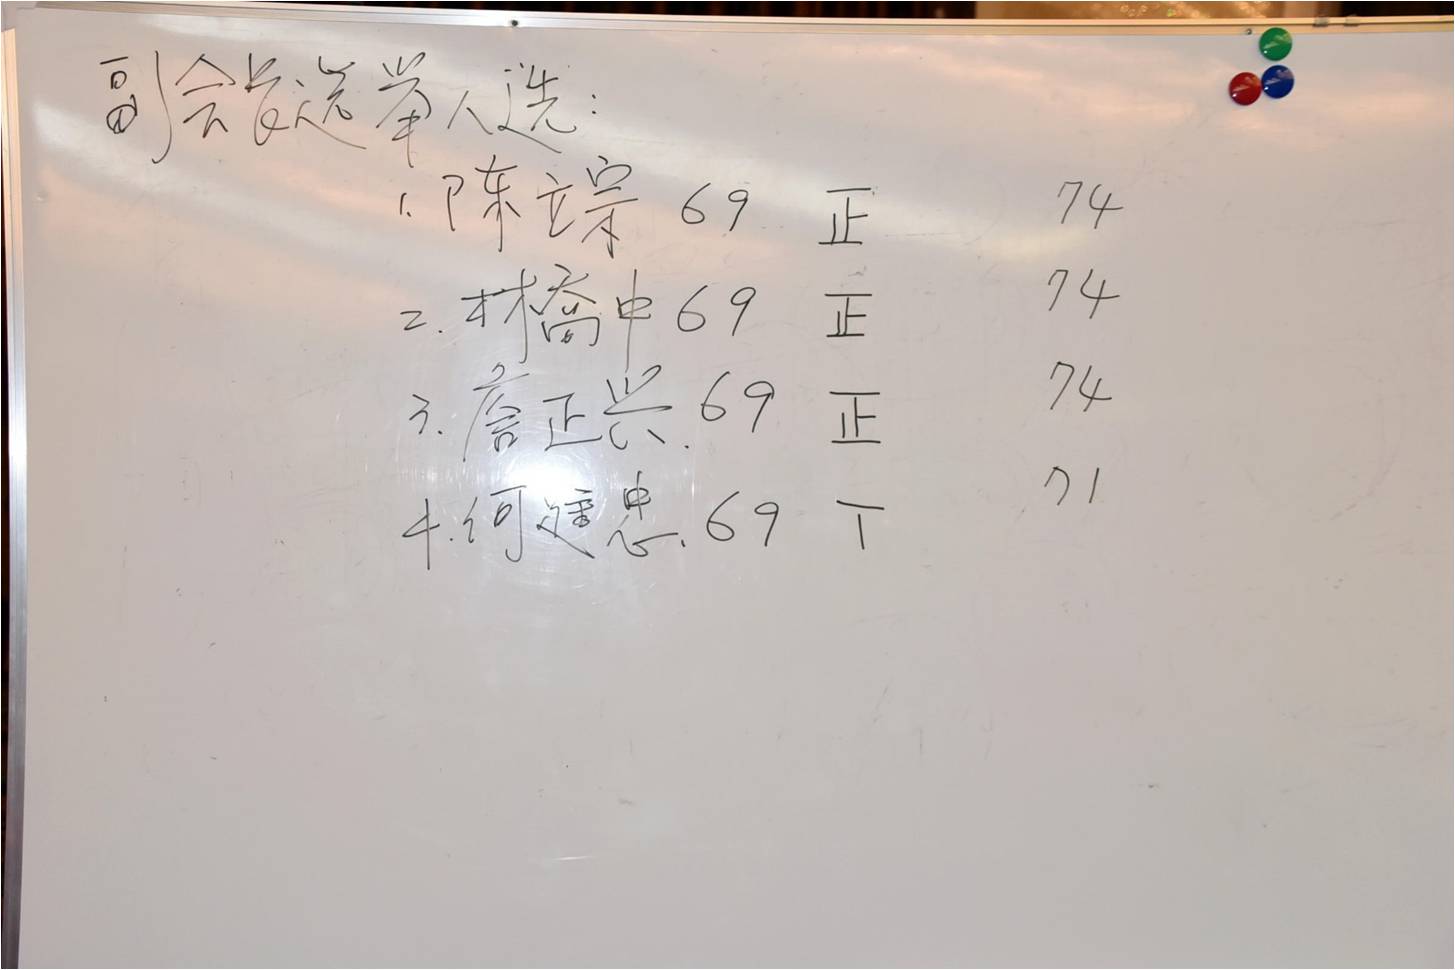 副会长选举人选:
1. 陈立宗 69 正 74
2. 林乔中 69 正 74
3. 詹正兴. 69 正 74
4. 何建忠. 69 丅 71